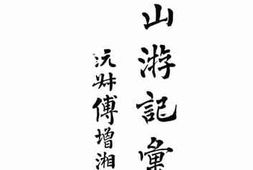 山游記彙
沅叔傅增湘